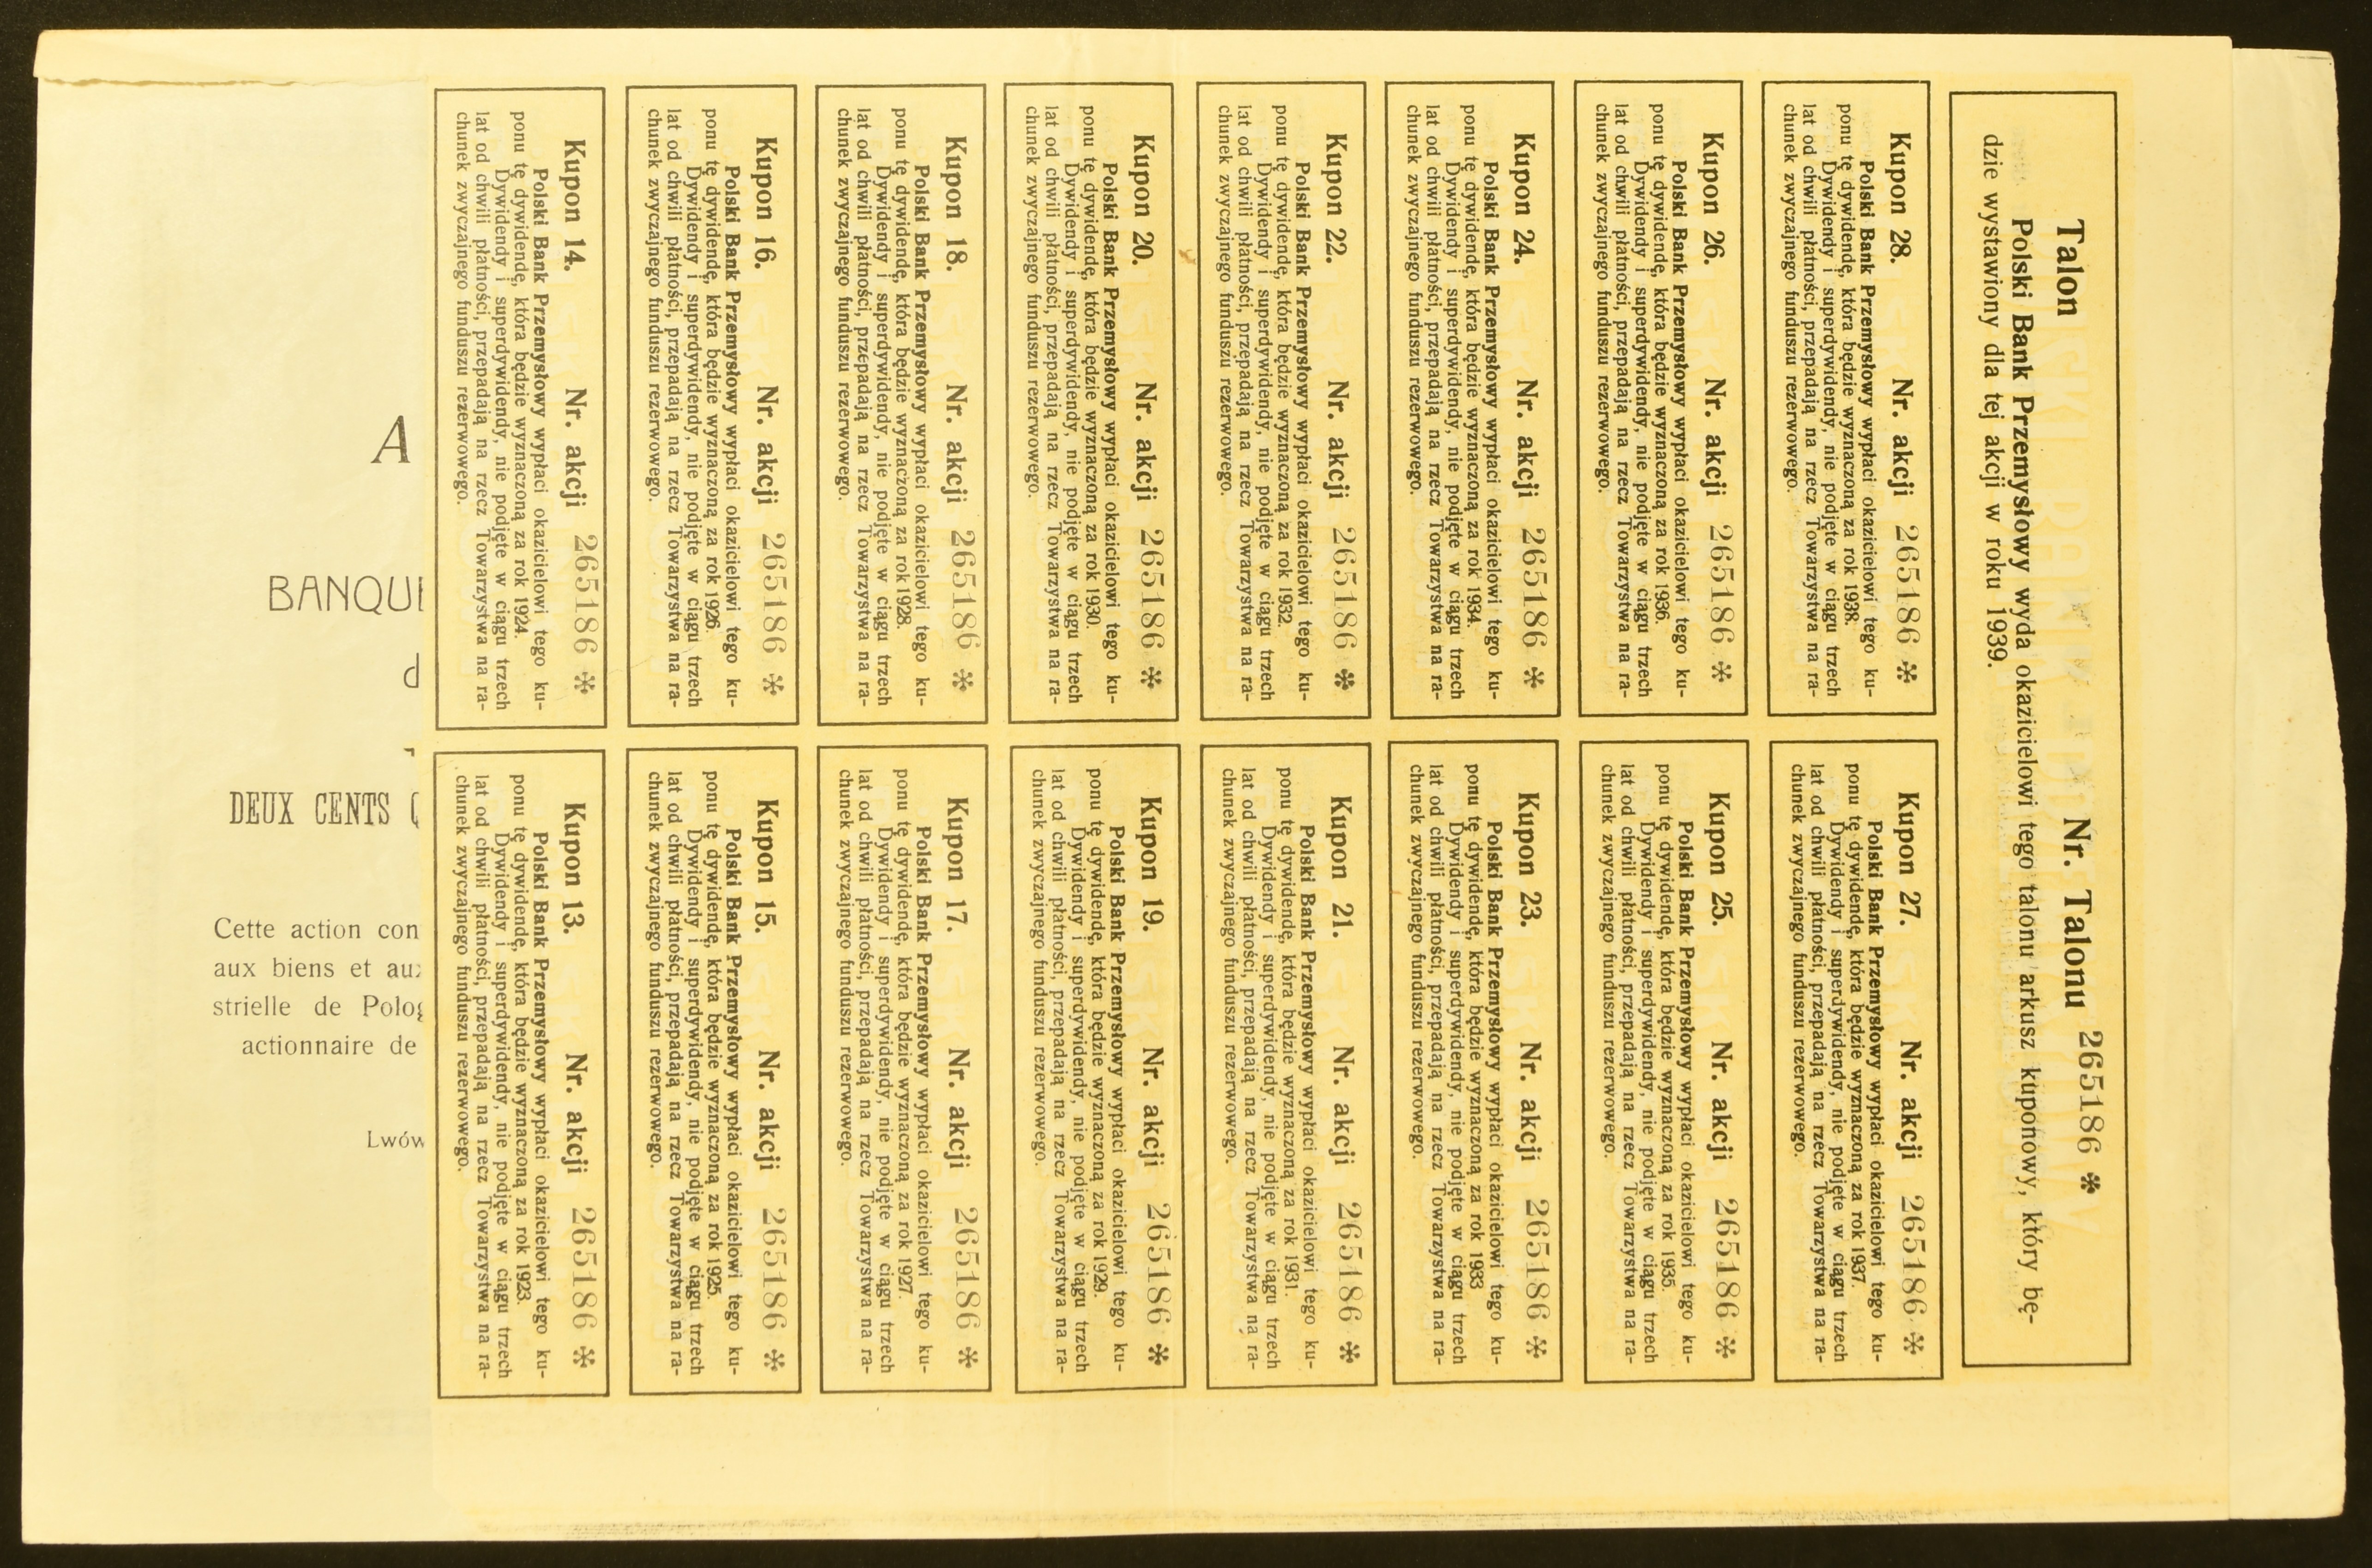 Talon Nr. Talonu 265186 *
Polski Bank Przemysłowy wyda okazicielowi tego talonu arkusz kuponowy, który bę-
dzie wystawiony dla tej akcji w roku 1939.
Kupon 28. Nr. akcji 265186 *
Polski Bank Przemysłowy wypłaci okazicielowi tego ku-
ponu tę dywidendę, która będzie wyznaczoną za rok 1938.
Dywidendy i superdywidendy, nie podjęte w ciągu trzech
lat od chwili płatności, przepadają na rzecz Towarzystwa na ra-
chunek zwyczajnego funduszu rezerwowego.
Kupon 27. Nr. akcji 265186 *
Polski Bank Przemysłowy wypłaci okazicielowi tego ku-
ponu tę dywidendę, która będzie wyznaczoną za rok 1937.
Dywidendy i superdywidendy, nie podjęte w ciągu trzech
lat od chwili płatności, przepadają na rzecz Towarzystwa na ra-
chunek zwyczajnego funduszu rezerwowego.
Kupon 26. Nr. akcji 265186 *
Polski Bank Przemysłowy wypłaci okazicielowi tego ku-
ponu tę dywidendę, która będzie wyznaczoną za rok 1936.
Dywidendy i superdywidendy, nie podjęte w ciągu trzech
lat od chwili płatności, przepadają na rzecz Towarzystwa na ra-
chunek zwyczajnego funduszu rezerwowego.
Kupon 25. Nr. akcji 265186 *
Polski Bank Przemysłowy wypłaci okazicielowi tego ku-
ponu tę dywidendę, która będzie wyznaczoną za rok 1935.
Dywidendy i superdywidendy, nie podjęte w ciągu trzech
lat od chwili płatności, przepadają na rzecz Towarzystwa na ra-
chunek zwyczajnego funduszu rezerwowego.
Kupon 24. Nr. akcji 265186 *
Polski Bank Przemysłowy wypłaci okazicielowi tego ku-
ponu tę dywidendę, która będzie wyznaczoną za rok 1934.
Dywidendy i superdywidendy, nie podjęte w ciągu trzech
lat od chwili płatności, przepadają na rzecz Towarzystwa na ra-
chunek zwyczajnego funduszu rezerwowego.
Kupon 23. Nr. akcji 265186 *
Polski Bank Przemysłowy wypłaci okazicielowi tego ku-
ponu tę dywidendę, która będzie wyznaczoną za rok 1933
Dywidendy i superdywidendy, nie podjęte w ciągu trzech
lat od chwili płatności, przepadają na rzecz Towarzystwa na ra-
chunek zwyczajnego funduszu rezerwowego.
Kupon 22. Nr. akcji 265186 *
Polski Bank Przemysłowy wypłaci okazicielowi tego ku-
ponu tę dywidendę, która będzie wyznaczoną za rok 1932.
Dywidendy i superdywidendy, nie podjęte w ciągu trzech
lat od chwili płatności, przepadają na rzecz Towarzystwa na ra-
chunek zwyczajnego funduszu rezerwowego.
Kupon 21. Nr. akcji 265186 *
Polski Bank Przemysłowy wypłaci okazicielowi tego ku-
ponu tę dywidendę, która będzie wyznaczoną za rok 1931.
Dywidendy i superdywidendy, nie podjęte w ciągu trzech
lat od chwili płatności, przepadają na rzecz Towarzystwa na ra-
chunek zwyczajnego funduszu rezerwowego.
Kupon 20. Nr. akcji 265186 *
Polski Bank Przemysłowy wypłaci okazicielowi tego ku-
ponu tę dywidendę, która będzie wyznaczoną za rok 1930.
Dywidendy i superdywidendy, nie podjęte w ciągu trzech
lat od chwili płatności, przepadają na rzecz Towarzystwa na ra-
chunek zwyczajnego funduszu rezerwowego.
Kupon 19. Nr. akcji 265186 *
Polski Bank Przemysłowy wypłaci okazicielowi tego ku-
ponu tę dywidendę, która będzie wyznaczoną za rok 1929.
Dywidendy i superdywidendy, nie podjęte w ciągu trzech
lat od chwili płatności, przepadają na rzecz Towarzystwa na ra-
chunek zwyczajnego funduszu rezerwowego.
Kupon 18. Nr. akcji 265186 *
Polski Bank Przemysłowy wypłaci okazicielowi tego ku-
ponu tę dywidendę, która będzie wyznaczoną za rok 1928.
Dywidendy i superdywidendy, nie podjęte w ciągu trzech
lat od chwili płatności, przepadają na rzecz Towarzystwa na ra-
chunek zwyczajnego funduszu rezerwowego.
Kupon 17. Nr. akcji 265186 *
Polski Bank Przemysłowy wypłaci okazicielowi tego ku-
ponu tę dywidendę, która będzie wyznaczoną za rok 1927.
Dywidendy i superdywidendy, nie podjęte w ciągu trzech
lat od chwili płatności, przepadają na rzecz Towarzystwa na ra-
chunek zwyczajnego funduszu rezerwowego.
Kupon 16. Nr. akcji 265186 *
Polski Bank Przemysłowy wypłaci okazicielowi tego ku-
ponu tę dywidendę, która będzie wyznaczoną za rok 1926.
Dywidendy i superdywidendy, nie podjęte w ciągu trzech
lat od chwili płatności, przepadają na rzecz Towarzystwa na ra-
chunek zwyczajnego funduszu rezerwowego.
Kupon 15. Nr. akcji 265186 *
Polski Bank Przemysłowy wypłaci okazicielowi tego ku-
ponu tę dywidendę, która będzie wyznaczoną za rok 1925.
Dywidendy i superdywidendy, nie podjęte w ciągu trzech
lat od chwili płatności, przepadają na rzecz Towarzystwa na ra-
chunek zwyczajnego funduszu rezerwowego.
Kupon 14. Nr. akcji 265186 *
Polski Bank Przemysłowy wypłaci okazicielowi tego ku-
ponu tę dywidendę, która będzie wyznaczoną za rok 1924.
Dywidendy i superdywidendy, nie podjęte w ciągu trzech
lat od chwili płatności, przepadają na rzecz Towarzystwa na ra-
chunek zwyczajnego funduszu rezerwowego.
Kupon 13. Nr. akcji 265186 *
Polski Bank Przemysłowy wypłaci okazicielowi tego ku-
ponu tę dywidendę, która będzie wyznaczoną za rok 1923.
Dywidendy i superdywidendy, nie podjęte w ciągu trzech
lat od chwili płatności, przepadają na rzecz Towarzystwa na ra-
chunek zwyczajnego funduszu rezerwowego.
A
BANQU
d
DEUX CENTS
Cette action con
aux biens et au
strielle de Polog
actionnaire de
Lwów